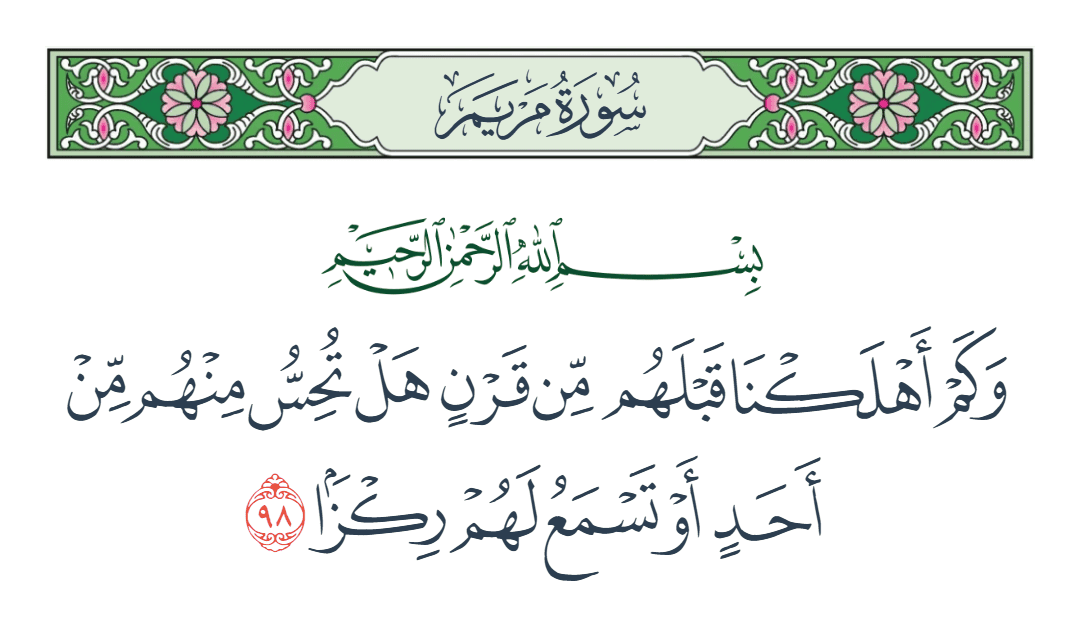 سُورَةُ مَرْيَمَ
بِسْمِ ٱللَّهِ ٱلرَّحْمَٰنِ ٱلرَّحِيمِ
وَكَمْ أَهْلَكْنَا قَبْلَهُم مِّن قَرْنٍ هَلْ تُحِسُّ مِنْهُم مِّنْ
أَحَدٍ أَوْ تَسْمَعُ لَهُمْ رِكْزَۢا ٩٨